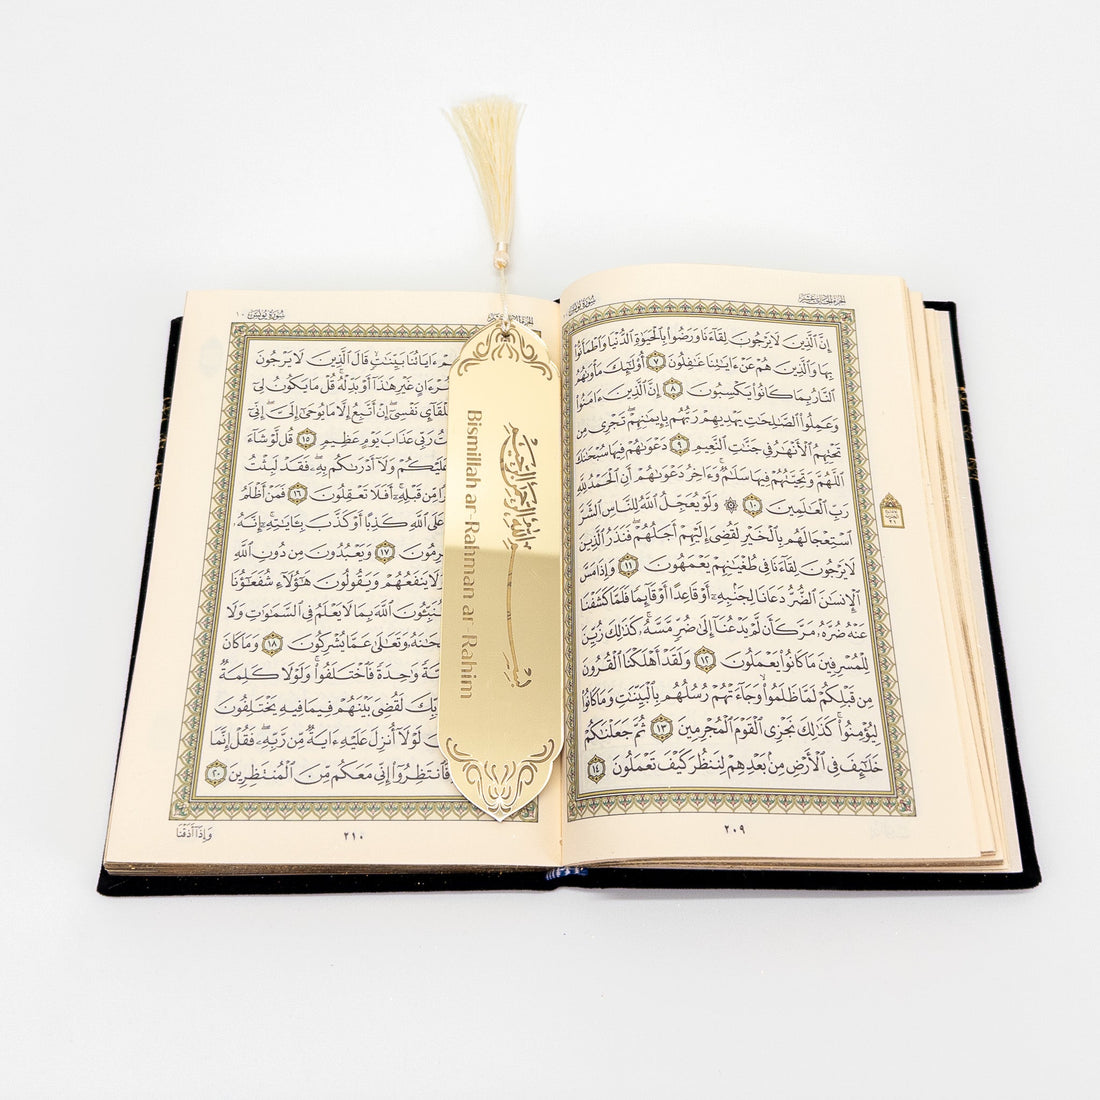 سُورَةُ يُونُسَ
الجُزْءُ الحَادِي عَشَرَ
إِنَّ ٱلَّذِينَ لَا يَرْجُونَ لِقَآءَنَا وَرَضُوا۟ بِٱلْحَيَوٰةِ ٱلدُّنْيَا وَٱطْمَأَنُّوا۟
بِهَا وَٱلَّذِينَ هُمْ عَنْ ءَايَٰتِنَا غَٰفِلُونَ ٧ أُو۟لَٰٓئِكَ مَأْوَىٰهُمُ
ٱلنَّارُ بِمَا كَانُوا۟ يَكْسِبُونَ ٨ إِنَّ ٱلَّذِينَ ءَامَنُوا۟
وَعَمِلُوا۟ ٱلصَّٰلِحَٰتِ يَهْدِيهِمْ رَبُّهُم بِإِيمَٰنِهِمْ ۖ تَجْرِى مِن
تَحْتِهِمُ ٱلْأَنْهَٰرُ فِى جَنَّٰتِ ٱلنَّعِيمِ ٩ دَعْوَىٰهُمْ فِيهَا سُبْحَٰنَكَ
ٱللَّهُمَّ وَتَحِيَّتُهُمْ فِيهَا سَلَٰمٌ ۚ وَءَاخِرُ دَعْوَىٰهُمْ أَنِ ٱلْحَمْدُ لِلَّهِ
رَبِّ ٱلْعَٰلَمِينَ ١٠ ۞ وَلَوْ يُعَجِّلُ ٱللَّهُ لِلنَّاسِ ٱلشَّرَّ
ٱسْتِعْجَالَهُم بِٱلْخَيْرِ لَقُضِىَ إِلَيْهِمْ أَجَلُهُمْ ۖ فَنَذَرُ ٱلَّذِينَ
لَا يَرْجُونَ لِقَآءَنَا فِى طُغْيَٰنِهِمْ يَعْمَهُونَ ١١ وَإِذَا مَسَّ
ٱلْإِنسَٰنَ ٱلضُّرُّ دَعَانَا لِجَنۢبِهِۦٓ أَوْ قَاعِدًا أَوْ قَآئِمًا فَلَمَّا كَشَفْنَا
عَنْهُ ضُرَّهُۥ مَرَّ كَأَن لَّمْ يَدْعُنَآ إِلَىٰ ضُرٍّ مَّسَّهُۥ ۚ كَذَٰلِكَ زُيِّنَ
لِلْمُسْرِفِينَ مَا كَانُوا۟ يَعْمَلُونَ ١٢ وَلَقَدْ أَهْلَكْنَا ٱلْقُرُونَ
مِن قَبْلِكُمْ لَمَّا ظَلَمُوا۟ ۙ وَجَآءَتْهُمْ رُسُلُهُم بِٱلْبَيِّنَٰتِ وَمَا كَانُوا۟
لِيُؤْمِنُوا۟ ۚ كَذَٰلِكَ نَجْزِى ٱلْقَوْمَ ٱلْمُجْرِمِينَ ١٣ ثُمَّ جَعَلْنَٰكُمْ
خَلَٰٓئِفَ فِى ٱلْأَرْضِ مِنۢ بَعْدِهِمْ لِنَنظُرَ كَيْفَ تَعْمَلُونَ ١٤
٢٠٩
بِسْمِ اللَّهِ الرَّحْمَٰنِ الرَّحِيمِ
Bismillah ar-Rahman ar-Rahim
سُورَةُ يُونُسَ ١٠
ءَايَاتُنَا بَيِّنَٰتٍ ۙ قَالَ ٱلَّذِينَ لَا يَرْجُونَ
غَيْرِ هَٰذَآ أَوْ بَدِّلْهُ ۚ قُلْ مَا يَكُونُ لِىٓ
نَفْسِىٓ ۖ إِنْ أَتَّبِعُ إِلَّا مَا يُوحَىٰٓ إِلَىَّ ۖ إِنِّىٓ
رَبِّى عَذَابَ يَوْمٍ عَظِيمٍ ١٥ قُل لَّوْ شَآءَ
عَلَيْكُمْ وَلَآ أَدْرَىٰكُم بِهِۦ ۖ فَقَدْ لَبِثْتُ
مِّن قَبْلِهِۦٓ ۚ أَفَلَا تَعْقِلُونَ ١٦ فَمَنْ أَظْلَمُ
عَلَى ٱللَّهِ كَذِبًا أَوْ كَذَّبَ بِـَٔايَٰتِهِۦٓ ۚ إِنَّهُۥ
١٧ وَيَعْبُدُونَ مِن دُونِ ٱللَّهِ
لَا يَنفَعُهُمْ وَيَقُولُونَ هَٰٓؤُلَآءِ شُفَعَٰٓؤُنَا
ٱللَّهَ بِمَا لَا يَعْلَمُ فِى ٱلسَّمَٰوَٰتِ وَلَا
وَتَعَٰلَىٰ عَمَّا يُشْرِكُونَ ١٨ وَمَا كَانَ
وَٰحِدَةً فَٱخْتَلَفُوا۟ ۚ وَلَوْلَا كَلِمَةٌ
لَقُضِىَ بَيْنَهُمْ فِيمَا فِيهِ يَخْتَلِفُونَ
لَوْلَآ أُنزِلَ عَلَيْهِ ءَايَةٌ مِّن رَّبِّهِۦ ۖ فَقُلْ إِنَّمَا
فَٱنتَظِرُوٓا۟ إِنِّى مَعَكُم مِّنَ ٱلْمُنتَظِرِينَ ٢٠
٢١٠
وَإِذَآ أَذَقْنَا